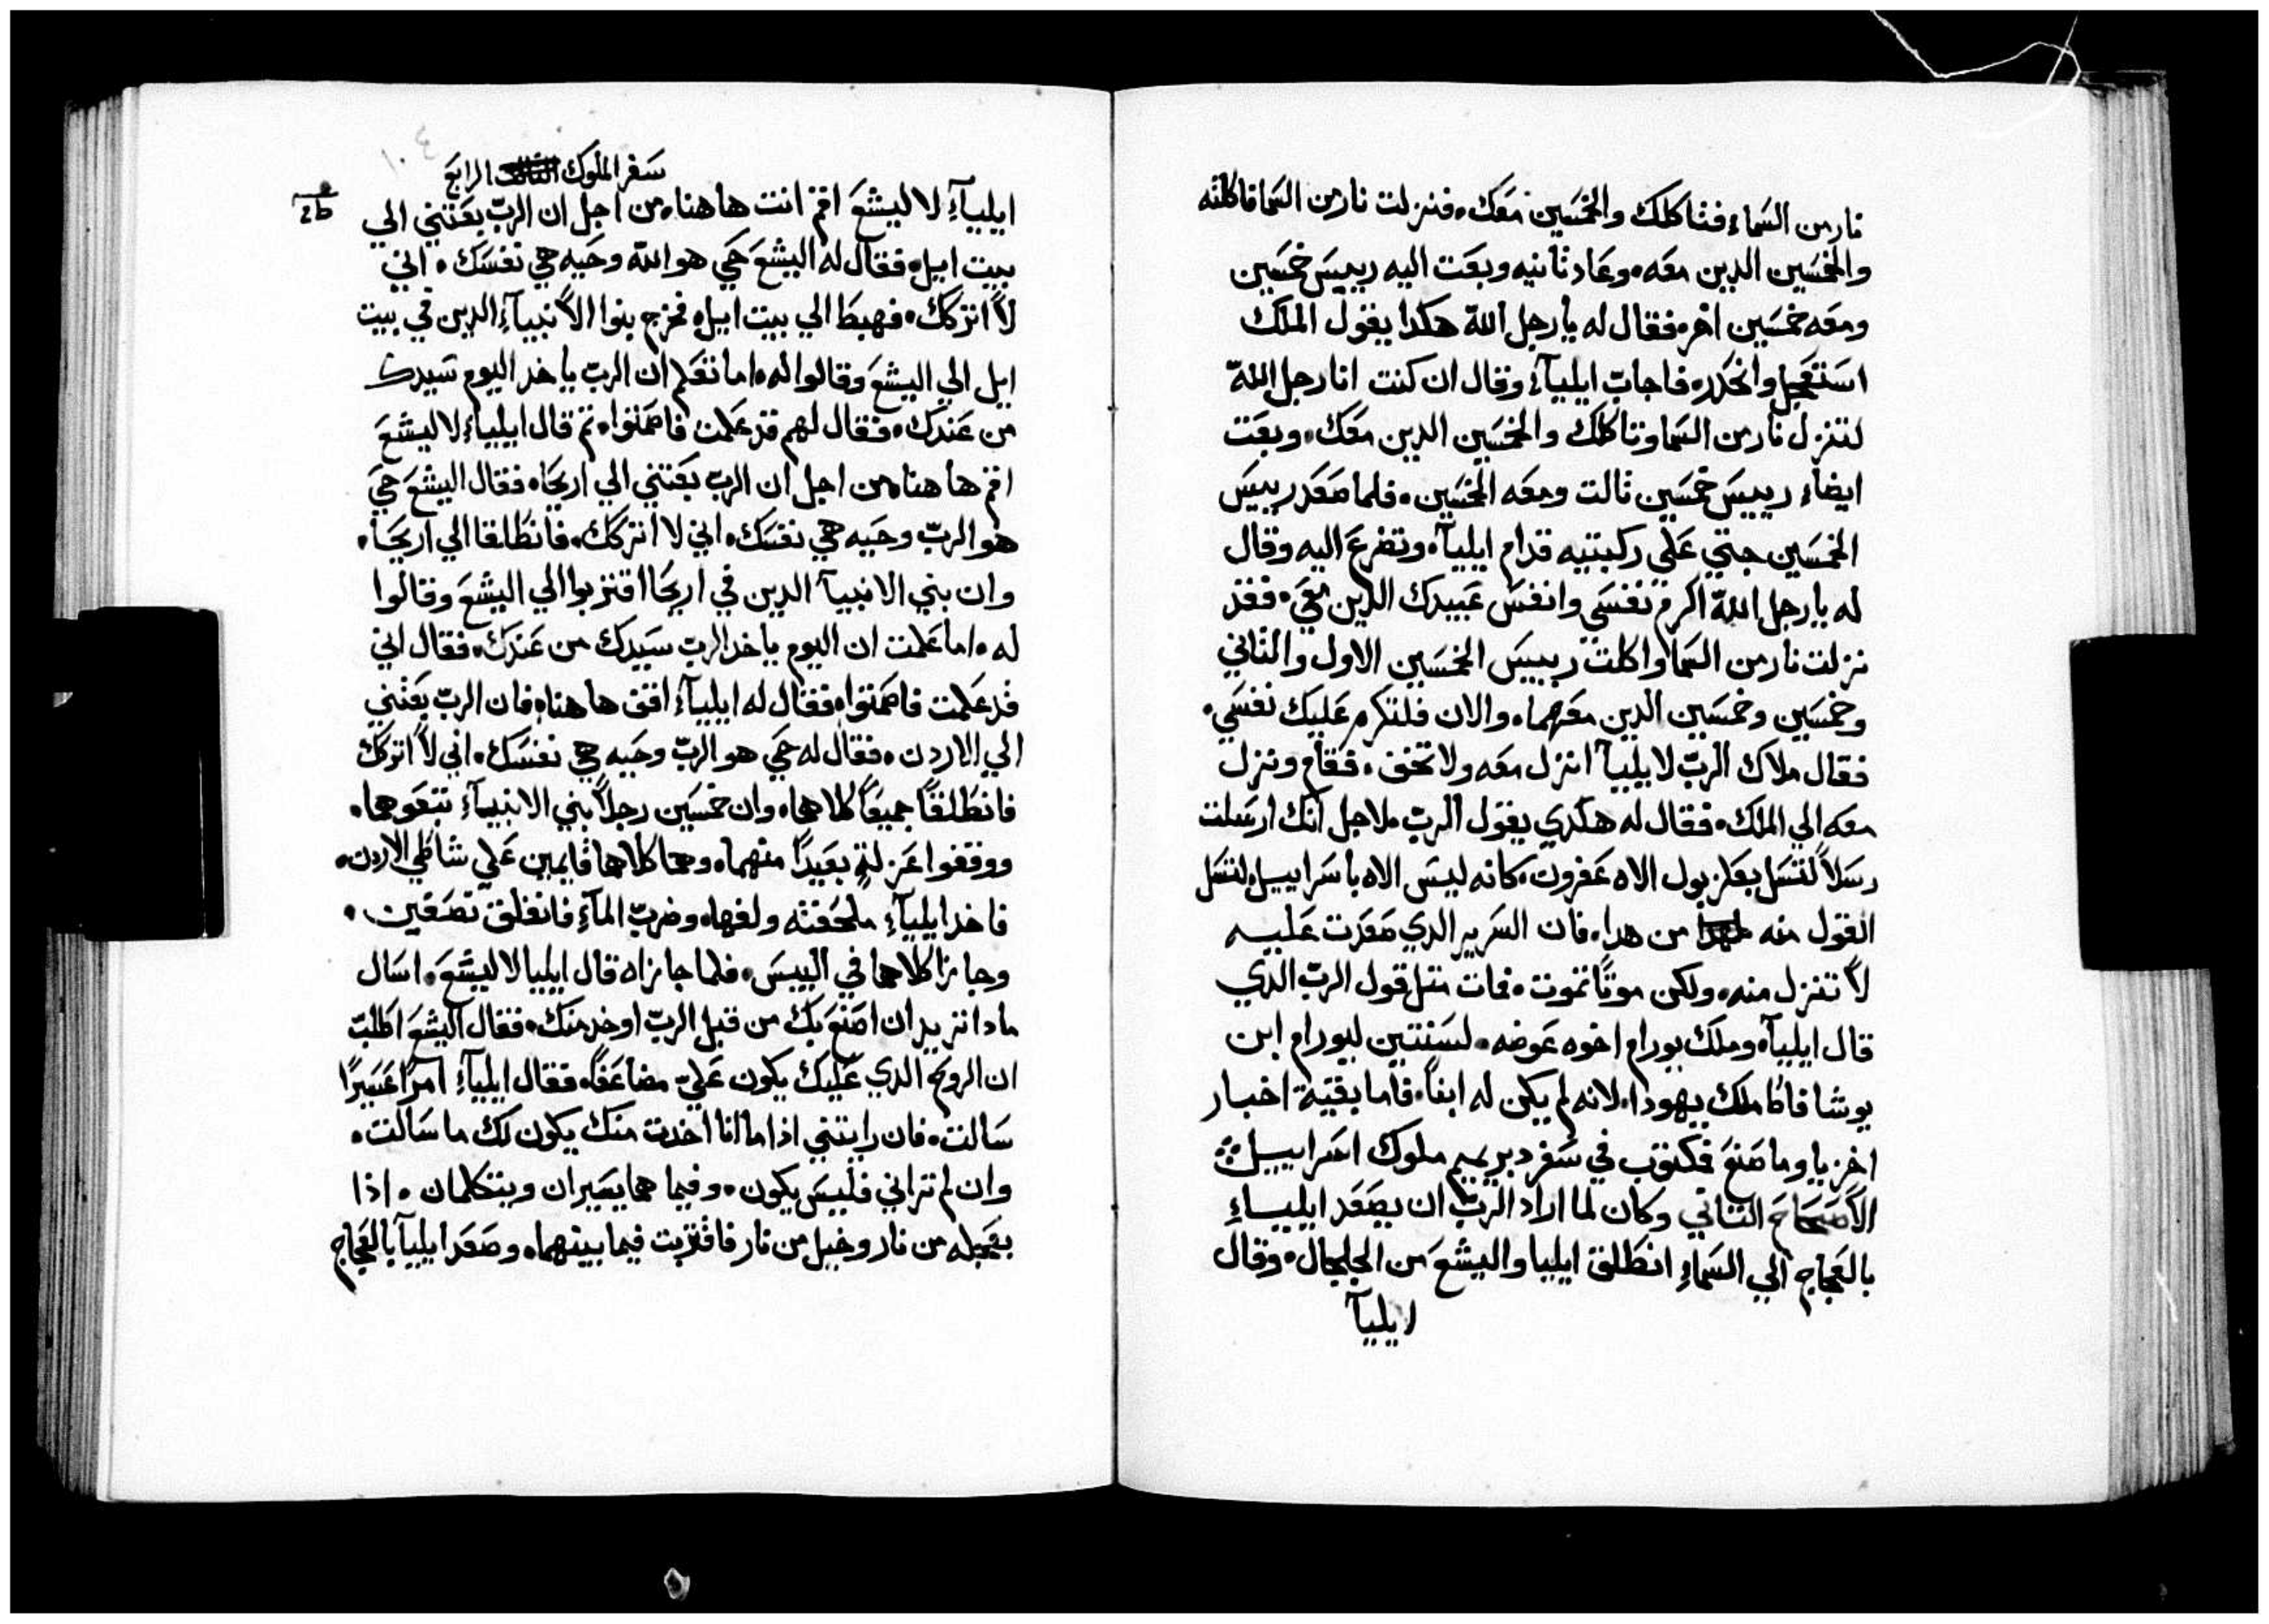 نار من السماء فتاكلك والخمسين معك. فنزلت نار من السما فاكلته
والخمسين الدين معه. وعاد تانيه وبعت اليه رييس خمسين
ومعه خمسين اخر. فقال له يا رجل الله هكدا يقول الملك
استعجل وانحدر. فاجاب ايلياء وقال ان كنت انا رجل الله
لتنزل نار من السما وتاكلك والخمسين الدين معك. وبعت
ايضاء رييس خمسين تالت ومعه الخمسين. فلما صعد رييس
الخمسين جتي علي ركبتيه قدام ايليآ. وتضرع اليه وقال
له يا رجل الله اكرم نفسي وانفس عبيدك الدين معي. فقد
نزلت نار من السما واكلت رييس الخمسين الاول والتاني
وخمسين وخمسين الدين معهما. والان فلتكرم عليك نفسي.
فقال ملاك الرب لايليآ انزل معه ولا تخف. فقام ونزل
معه الي الملك. فقال له هكدي يقول الرب. لاجل انك ارسلت
رسلاً لتسل بعلزبول الاه عفرون. كانه ليس الاه باسراييل لتسل
القول منه من هدا. فان السرير الدي صعدت عليه
لا تنزل منه. ولكن موتاً تموت. فمات متل قول الرب الدي
قال ايليآ. وملك يورام اخوه عوضه. لسنتين ليورام ابن
يوشافاط ملك يهودا. لانه لم يكن له ابناً. فاما بقية اخبار
اخزيا وما صنع فكتوب في سفر دبرييم ملوك اسراييل
الاصحاح التاني وكان لما اراد الرب ان يصعد ايلياء
بالعجاج الي السماء انطلق ايليا واليشع من الجلجال. وقال
ايليآ
١٠٤
سفر الملوك الرابع
ايليآء لاليشع اقم انت هاهنا. من اجل ان الرب بعتني الي
بيت ايل. فقال له اليشع حي هو الله وحيه هي نفسك. اني
لا اتركك. فهبطا الي بيت ايل. فخرج بنوا الانبيآء الدين في بيت
ايل الي اليشع وقالوا له. اما تعلم ان الرب ياخد اليوم سيدك
من عندك. فقال لهم قد علمت فاصمتوا. تم قال ايلياء لاليشع
اقم هاهنا. من اجل ان الرب بعتني الي اريحا. فقال اليشع حي
هو الرب وحيه هي نفسك. اني لا اتركك. فانطلقا الي اريحا.
وان بني الانبيآ الدين في اريحا اقتربوا الي اليشع وقالوا
له. اما علمت ان اليوم ياخد الرب سيدك من عندك. فقال اني
قد علمت فاصمتوا. فقال له ايليآء اقف هاهنا. فان الرب بعتني
الي الاردن. فقال له حي هو الرب وحيه هي نفسك. اني لا اتركك
فانطلقا جميعاً كلاهما. وان خمسين رجلاً بني الانبيآء تتبعوهما.
ووقفوا عزلةٍ بعيداً منهما. وهما كلاهما قايمين علي شاطي الاردن.
فاخد ايليآء ملحفته ولفها. وضرب المآء فانفلق نصفين.
وجازا كلاهما في اليبس. فلما جازاه قال ايليا لاليشع. اسال
مادا تريد ان اصنع بك من قبل اوخد منك. فقال اليشع اطلب
ان الروح الدي عليك يكون علي مضاعفاً. فقال ايليآء امراً عسيراً
سالت. فان رايتني اذا ما انا اخدت منك يكون لك ما سالت.
وان لم تراني فليس يكون. وفيما هما يسيران ويتكلمان. اذا
بعجله من نار وخيل من نار فاقتربت فيما بينهما. وصعد ايليآ بالعجاج